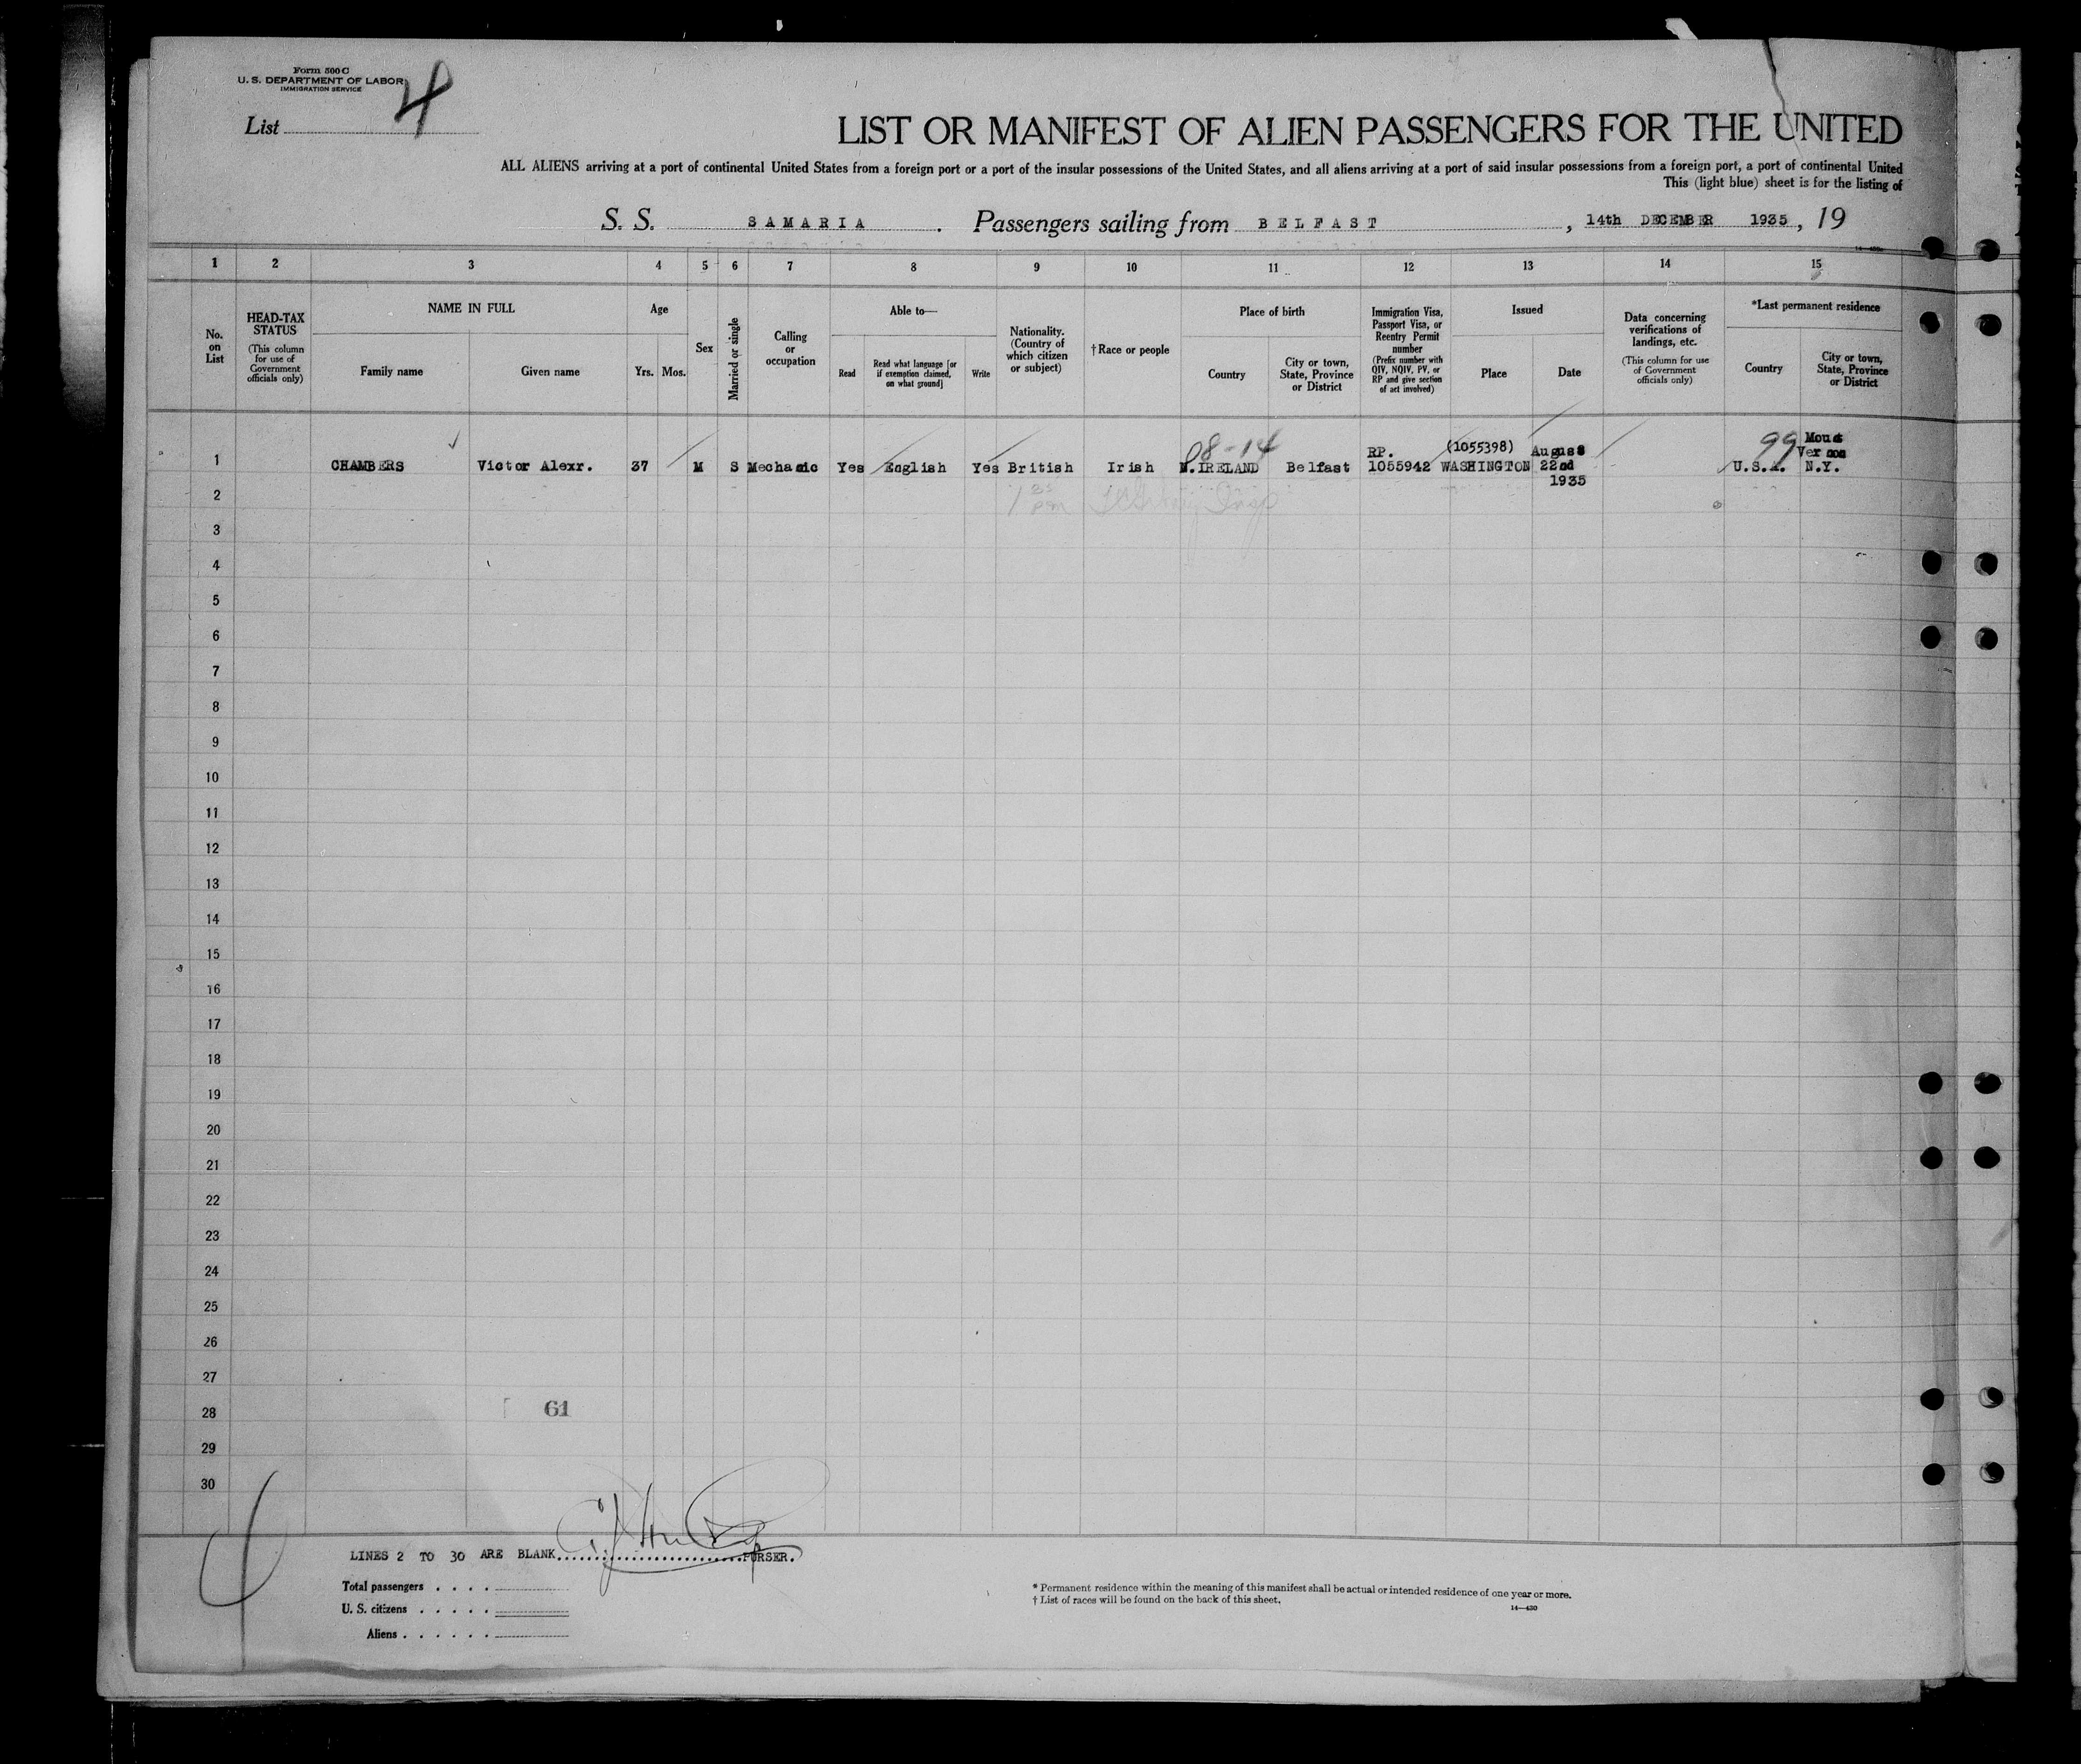 Form 500 C
U. S. DEPARTMENT OF LABOR
IMMIGRATION SERVICE
List 4
LIST OR MANIFEST OF ALIEN PASSENGERS FOR THE UNITED
ALL ALIENS arriving at a port of continental United States from a foreign port or a port of the insular possessions of the United States, and all aliens arriving at a port of said insular possessions from a foreign port, a port of continental United
This (light blue) sheet is for the listing of
S. S. SAMARIA. Passengers sailing from BELFAST, 14th DECEMBER 1935, 19
1 2 3 4 5 6 7 8 9 10 11 12 13 14 15
No. on List
HEAD-TAX STATUS (This column for use of Government officials only)
NAME IN FULL
Family name
Given name
Age
Yrs.
Mos.
Sex
Married or single
Calling or occupation
Able to—
Read
Read what language [or if exemption claimed, on what ground]
Write
Nationality. (Country of which citizen or subject)
†Race or people
Place of birth
Country
City or town, State, Province or District
Immigration Visa, Passport Visa, or Reentry Permit number (Prefix number with QIV, NQIV, PV, or RP and give section of act involved)
Issued
Place
Date
Data concerning verifications of landings, etc. (This column for use of Government officials only)
*Last permanent residence
Country
City or town, State, Province or District
08-14 RP. (1055398) August 99 Mount Vernon
1 CHAMBERS Victor Alexr. 37 M S Mechanic Yes English Yes British Irish N.IRELAND Belfast 1055942 WASHINGTON 22nd U.S.A. N.Y.
1935
2
3
4
5
6
7
8
9
10
11
12
13
14
15
16
17
18
19
20
21
22
23
24
25
26
27
28 61
29
30
LINES 2 TO 30 ARE BLANK PURSER.
Total passengers
U. S. citizens
Aliens
* Permanent residence within the meaning of this manifest shall be actual or intended residence of one year or more.
† List of races will be found on the back of this sheet.
14—430